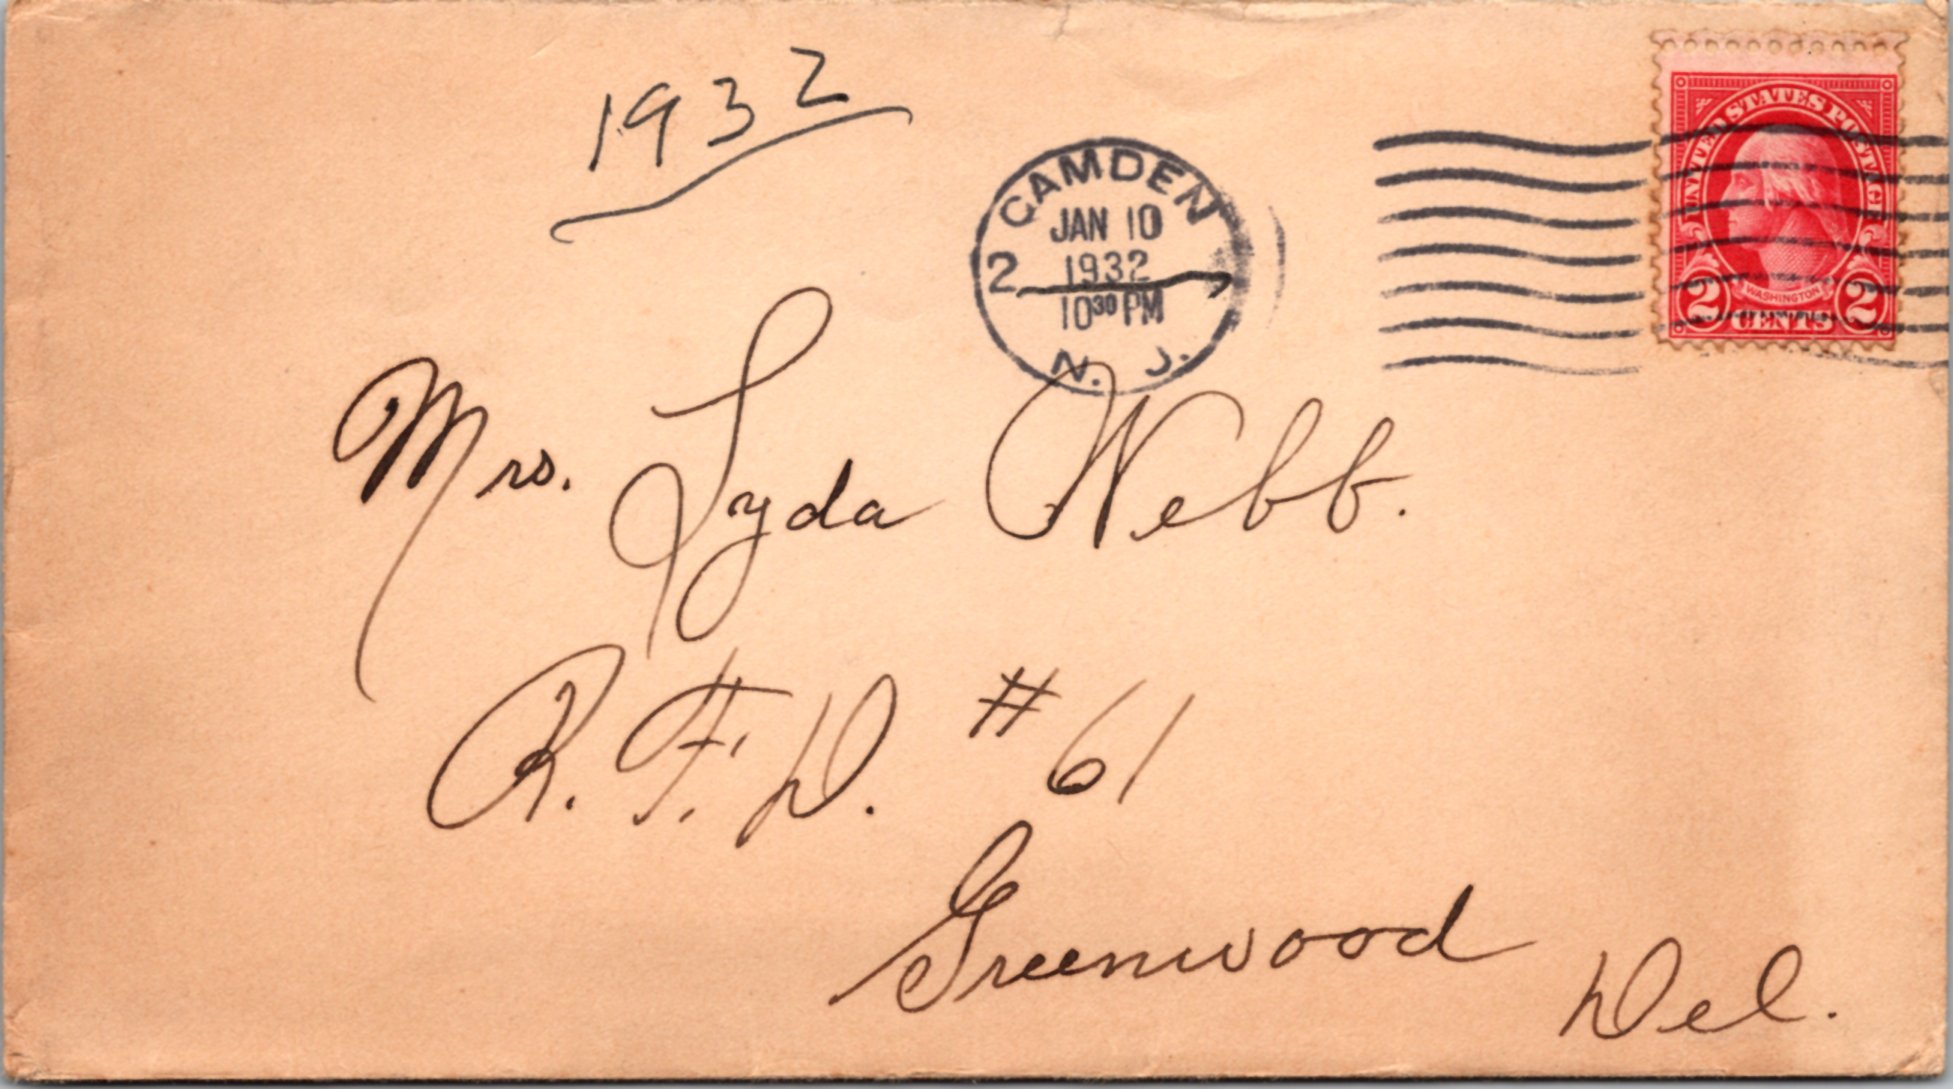 1932
CAMDEN
JAN 10
2 1932
10 30 PM
N. J.
UNITED STATES POSTAGE
WASHINGTON
2 CENTS 2
Mrs. Lyda Webb.
R. F. D. # 61
Greenwood
Del.